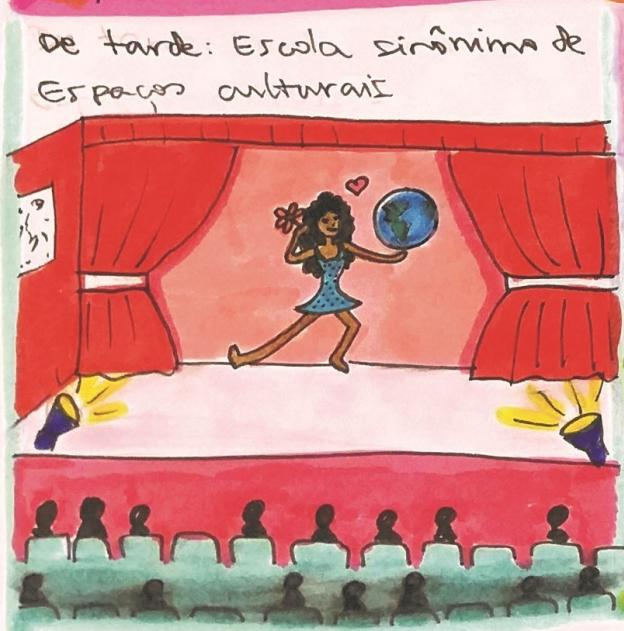 De tarde: Escola sinônimo de
Espaços culturais